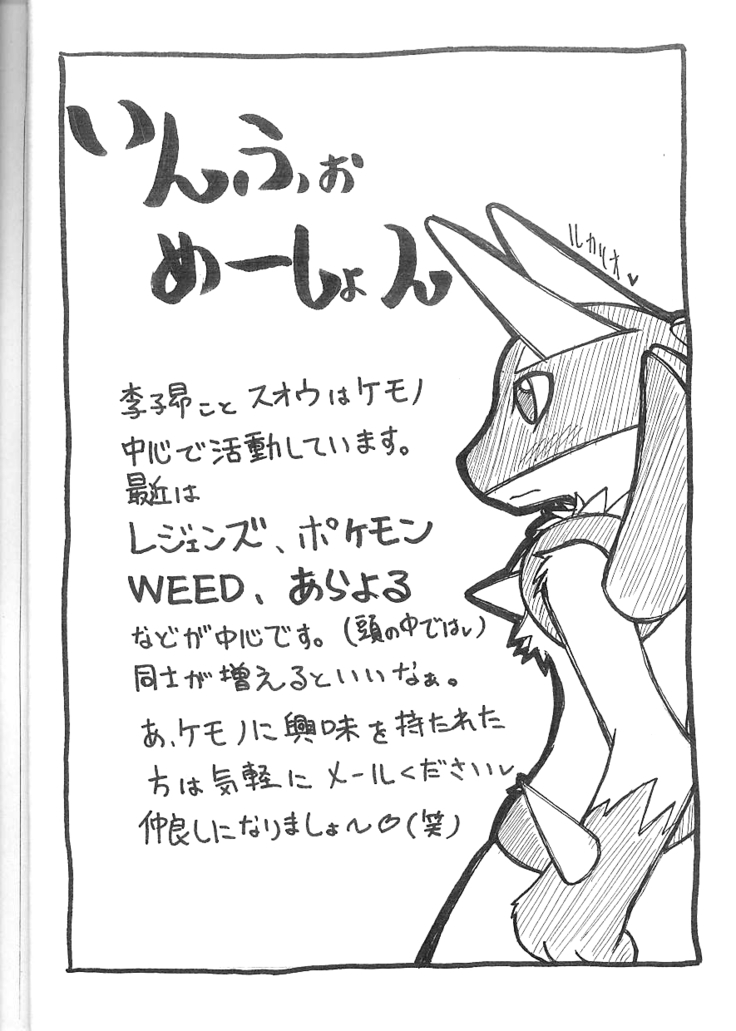 いんふぉ
めーしょん
ルカリオ♥
李子昂こと スオウはケモノ
中心で活動しています。
最近は
レジェンズ、ポケモン
WEED、あらよる
などが中心です。(頭の中ではレ)
同士が増えるといいなぁ。
あ、ケモノに興味を持たれた
方は気軽にメールくださいレ
仲良しになりましょ〜♡(笑)